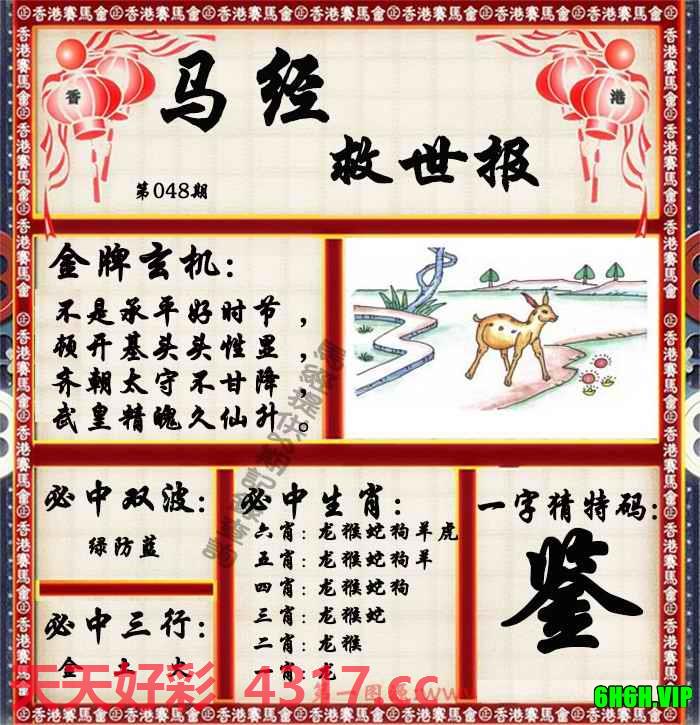 马经
救世报
香
港
第048期
金牌玄机：
不是承平好时节，
顿开基头头性显，
齐朝太守不甘降，
武皇精魄久仙升。
必中双波：
绿防蓝
必中三行：
金 土 火
必中生肖：
六肖：龙猴蛇狗羊虎
五肖：龙猴蛇狗羊
四肖：龙猴蛇狗
三肖：龙猴蛇
二肖：龙猴
一肖：龙
一字猜特码：
鉴
天天好彩 4317.cc
第一图库
6H6H.VIP
香港賽馬會